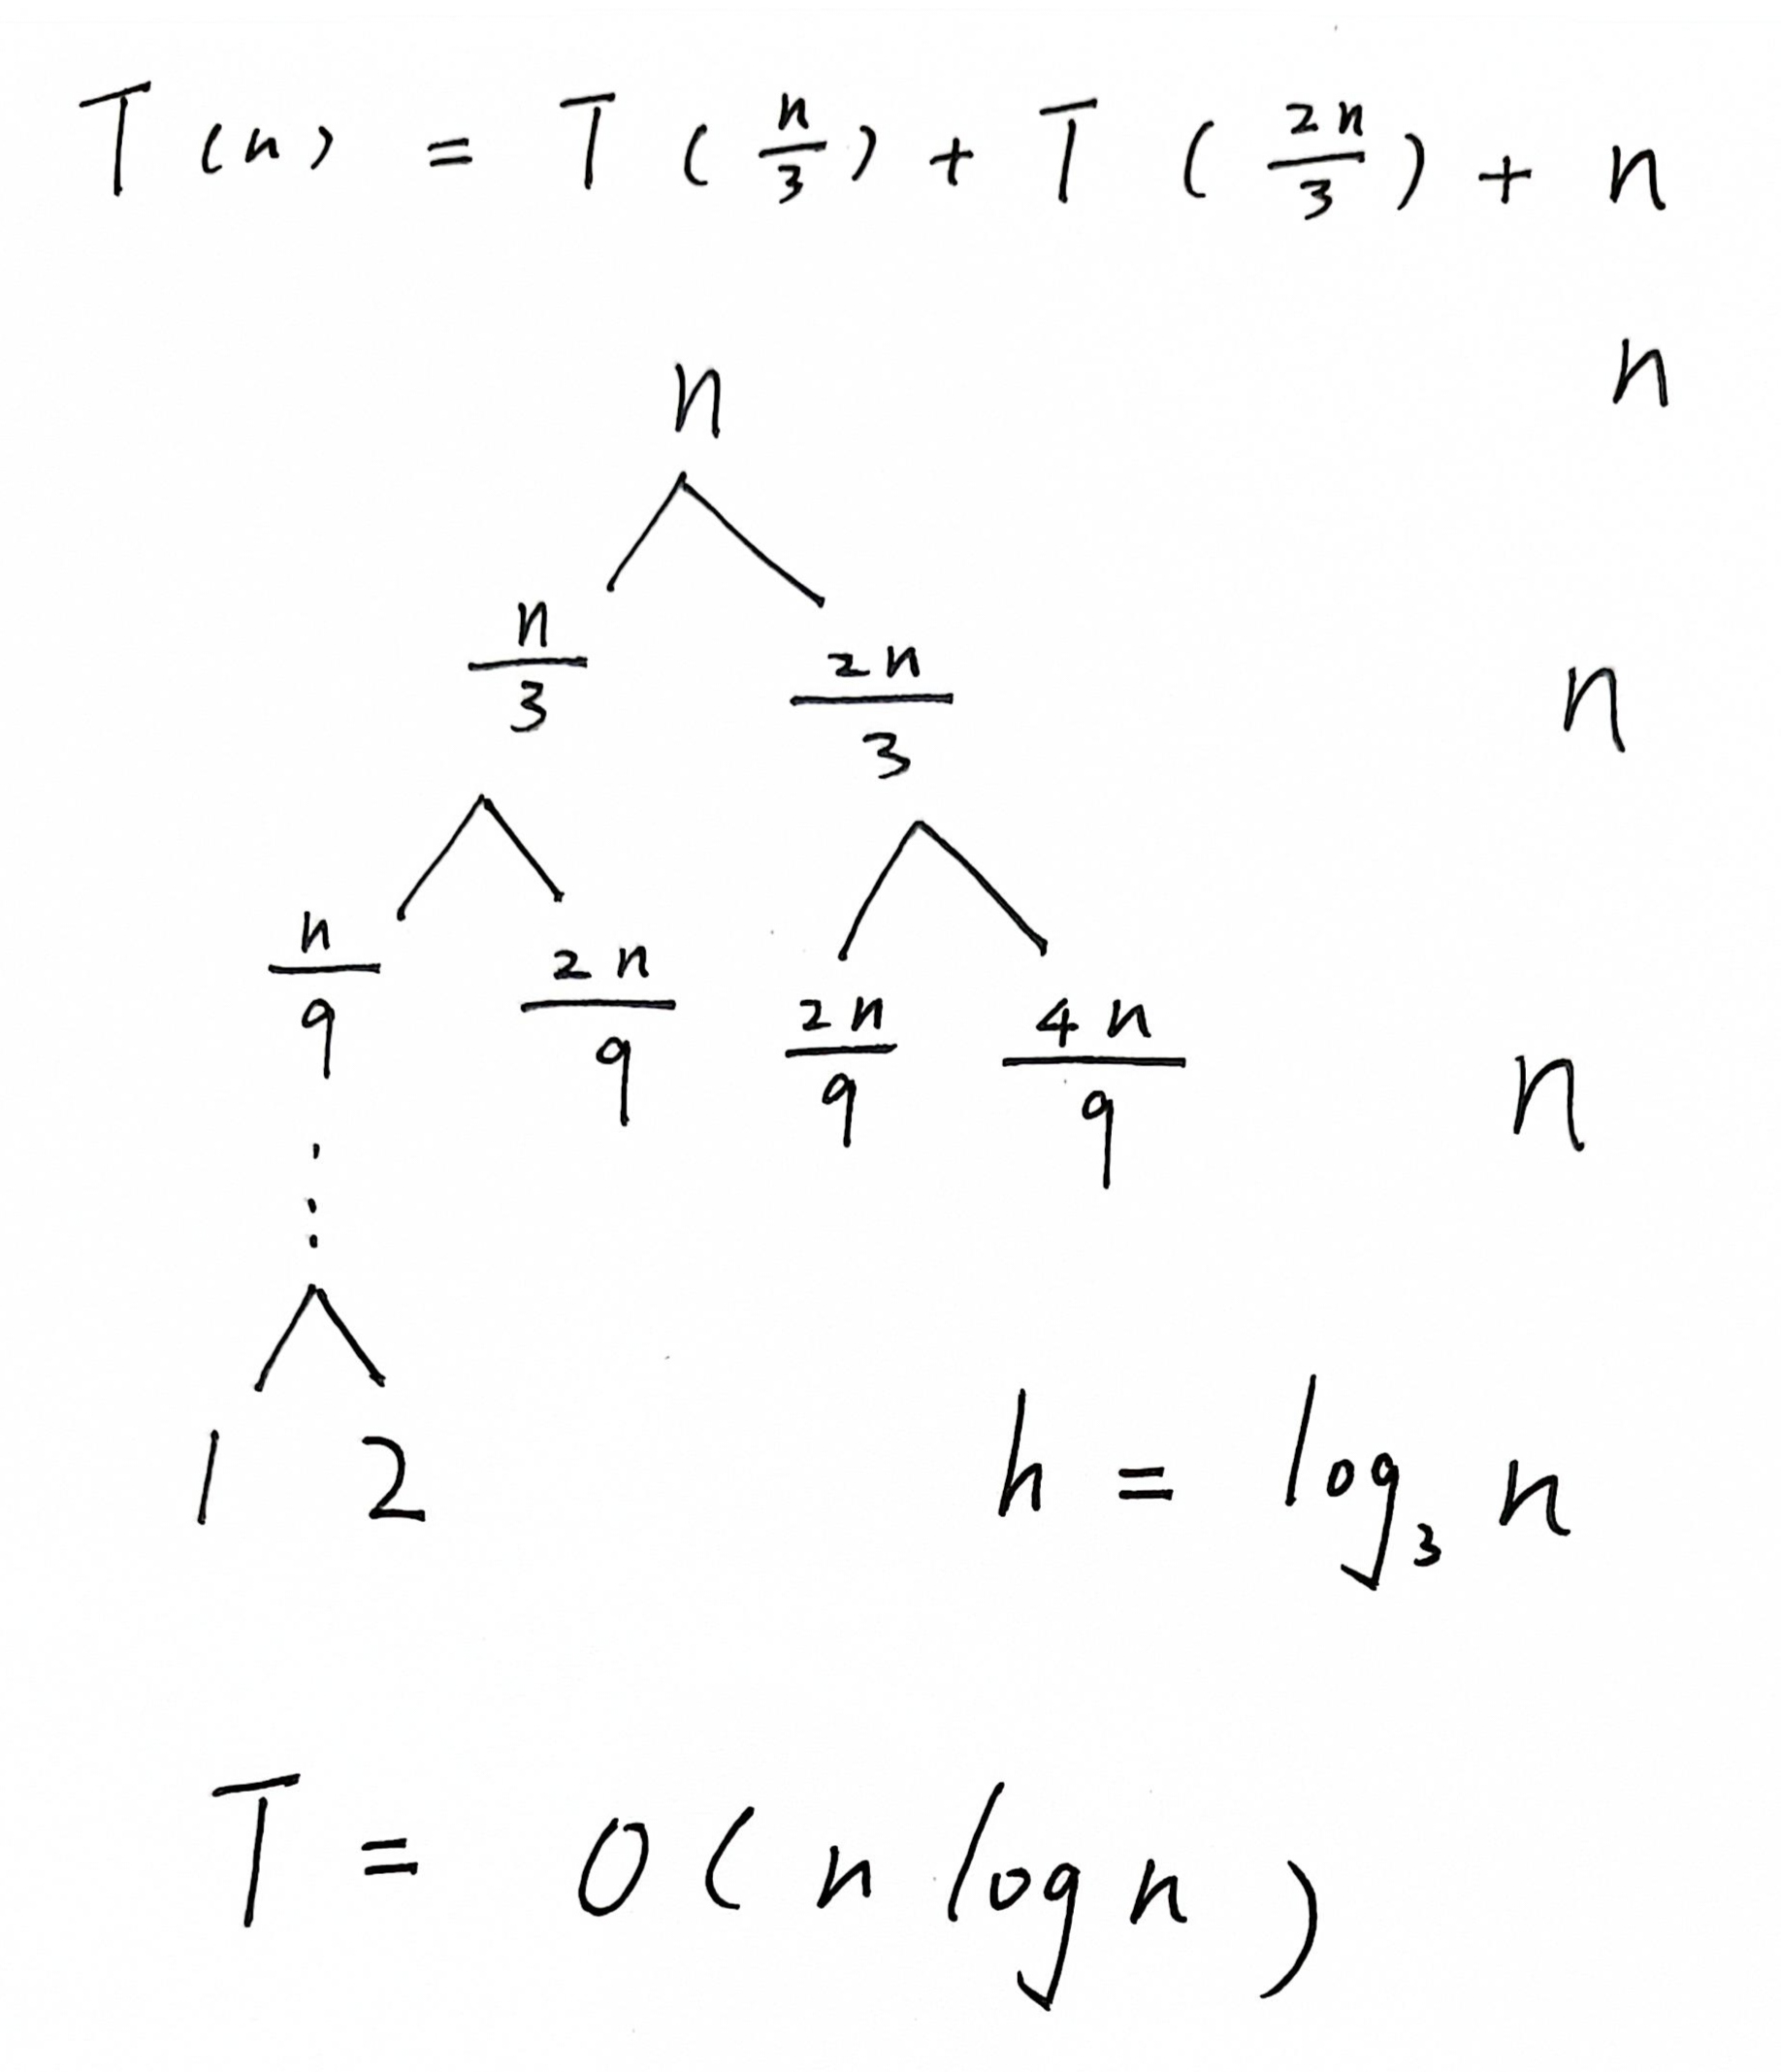 T(n) = T(n/3) + T(2n/3) + n
n n
n/3 2n/3 n
n/9 2n/9 2n/9 4n/9 n
⋮
1 2 h = log₃ n
T = O(n log n)